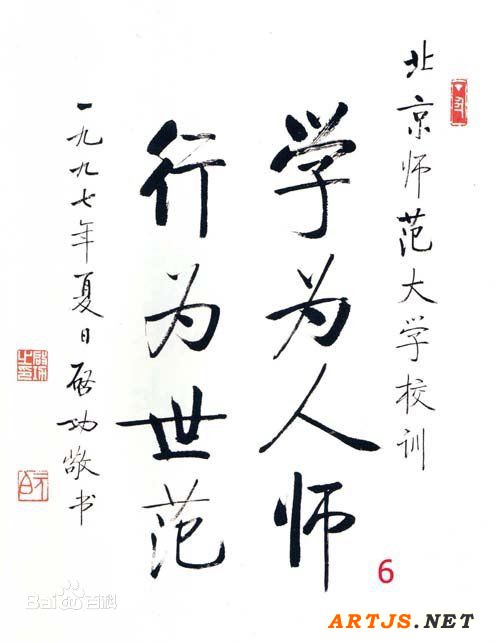 北京师范大学校训
学为人师
行为世范
一九九七年夏日启功敬书
6
Bai百科
ARTJS.NET